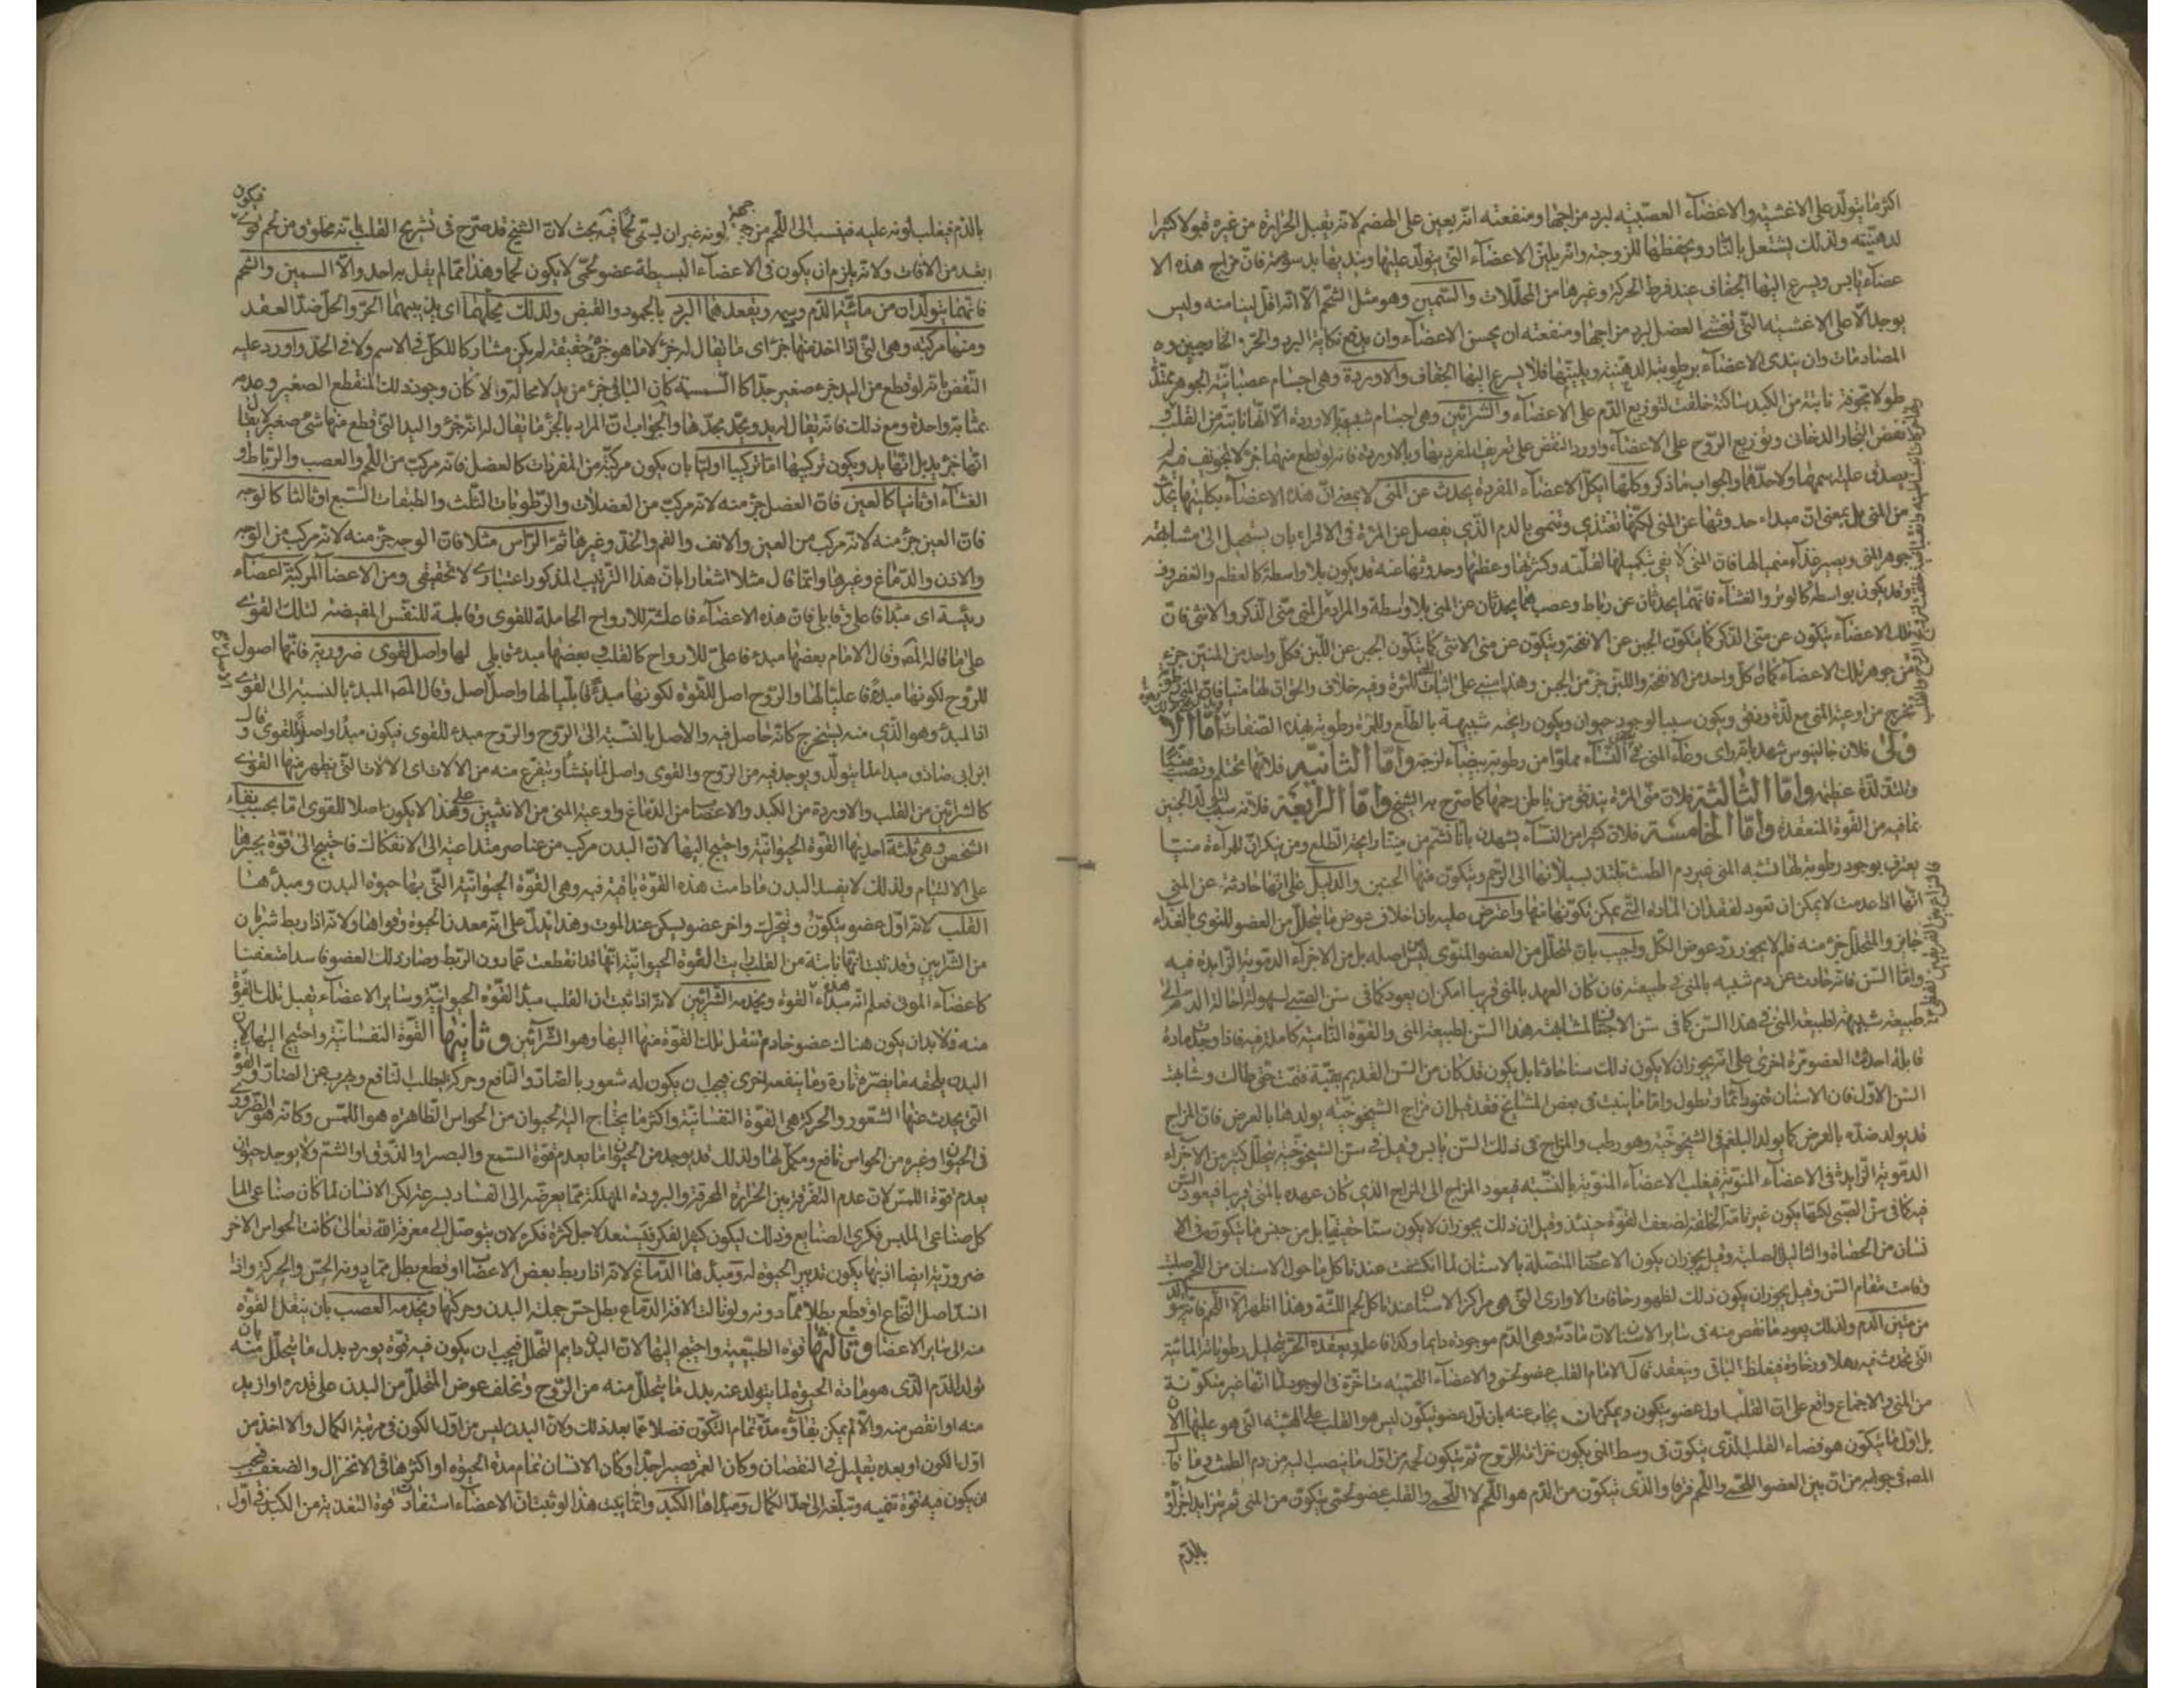 اكثر ما يتولد على الاغشية والاعضاء العصبية لبرد مزاجها ومنفعته انه يعين على الهضم لانه يقبل الحرارة من غيره قبولا كثيرا
لدهنيته ولذلك يشتعل بالنار ويحفظها للزوجته وانه يلين الاعضاء التى يتولد عليها وينديها بدسومته فان مزاج هذه الا
عضاء يابس ويسرع اليها الجفاف عند فرط الحركة وغيرها من المحللات والسمين وهو مثل الشحم الا انه اقل لينا منه وليس
يوجد الا على الاغشية التى تغشى العضل لبرد مزاجها ومنفعته ان يحسن الاعضاء وان يدفع نكاية البرد والحر الخارجين
المصادمات وان يندى الاعضاء برطوبته الدهنية ويلينها فلا يسرع اليها الجفاف والاوردة وهى اجسام عصبانية الجوهر ممتدة
طولا مجوفة نابتة من الكبد ساكنة خلقت لتوزيع الدم على الاعضاء والشرائين وهى اجسام شبيهة بالاوردة الا انها نابتة من القلب
نفض البخار الدخانى وتوزيع الروح على الاعضاء واورد النقض على تعريف المفرد بها وبالاوردة فانه لو قطع منها جزء لا تجويف فيه لم
يصدق عليه اسمها ولا حدها والجواب ما ذكر وكلها اى كل الاعضاء المفردة يحدث عن المنى لا بمعنى ان هذه الاعضاء بكليتها يحدث
من المنى بل بمعنى ان مبداء حدوثها عن المنى لكنها تغتذى وتنمى بالدم الذى يفصل عن المرة فى الاقراء بان يستحيل الى مشابهة
جوهر المنى ويصير غذاء منميا لها فان المنى لا يفى بتكميلها لقلته وكثرتها وعظمها وحدوثها عنه قد يكون بلا واسطة كالعظم والغضروف
وقد يكون بواسطة كالوتر والغشاء فانهما يحدثان عن رباط وعصب هما يحدثان عن المنى بلا واسطة والمراد بالمنى منى الذكر والانثى فان
تلك الاعضاء يتكون عن منى الذكر كما يتكون الجبن عن الانفحة ويتكون عن منى الانثى كما يتكون الجبن عن اللبن فكل واحد من المنيين جزء
من جوهر تلك الاعضاء كما ان كل واحد من الانفحة واللبن جزء من الجبن وهذا مبنى على اثبات المنى للمرة وفيه خلاف والحق ان لها منيا
يخرج من اوعية المنى مع لذة ودفق ويكون سببا لوجود حيوان ويكون رائحته شبيهة بالطلع وللمرة رطوبة بهذه الصفات اما الا
ولى فلان جالينوس شهد بانه راى وعاء المنى فى النساء مملوا من رطوبة بيضاء لزجة واما الثانية فلانها تحتلم
وتلتذ لذة عظيمة واما الثالثة فلان منى المرة يندفق من باطن رحمها كما صرح به الشيخ واما الرابعة فلانه سبب لتولد الجنين
بما فيه من القوة المنعقدة واما الخامسة فلان كثيرا من النساء يشهدن بانا نشم من منينا رايحة الطلع ومن ينكر ان للمراة منيا
يعترف بوجود رطوبة لها تشبه المنى غير دم الطمث تلتذ بسيلانها الى الرحم ويتكون منها الجنين والدليل على انها حادثة عن المنى
انها اذا عدمت لا يمكن ان تعود لفقدان المادة التى يمكن تكونها منها واعترض عليه بان اخلاف عوض ما يتحلل من العضو المنوى بالغذاء
جايز والمتحلل جزء منه فلم لا يجوز رد عوض الكل واجيب بان المتحلل من العضو المنوى ليس اصله بل من الاجزاء الدموية الزايدة فيه
واما السن فانه حادث عن دم شبيه بالمنى فى طبيعته فان كان العهد بالمنى قريبا امكن ان يعود كما فى سن الصبى لسهولة احالة الدم الى
طبيعة شبيهة لطبيعة المنى فى هذا السن كما فى سن الاجنة لمشابهة هذا السن لطبيعة المنى والقوة النامية كاملة فيه فاذا وجدت مادة
قابلة احدثت العضو مرة اخرى على انه يجوز ان لا يكون ذلك سنا حادثا بل يكون قد كان من السن القديم بقية فنمت حتى طالت وشابهت
السن الاول فان الاسنان تنمو دائما وتطول واما ما ينبت فى بعض المشايخ فقد قيل ان مزاج الشيخوخية يولدها بالعرض فان المزاج
قد يولد ضده بالعرض كما يولد البلغم فى الشيخوخية وهو رطب والمزاج فى ذلك السن يابس وقيل فى سن الشيخوخية يتحلل كثير من الاجزاء
الدموية الزايدة فى الاعضاء المنوية فيغلب الاعضاء المنوية بالنسبة فيعود المزاج الى المزاج الذى كان عهده بالمنى قريبا فيعود السن
فيه كما فى سن الصبى لكنها يكون غير تامة الخلقة لضعف القوة حينئذ وقيل ان ذلك يجوز ان لا يكون سنا حقيقيا بل من جنس ما يتكون فى الا
نسان من الحصاة والثاليل الصلبة وقيل يجوز ان يكون الاعضاء المتصلة بالاسنان لما انكشفت عند تاكل ما حول الاسنان من اللحم صلبت
وقامت مقام السن وقيل يجوز ان يكون ذلك لظهور حافات الاوارى التى هى مراكز الاسنان عند تاكل لحم اللثة وهذا اظهر الا اللحم فانه يتولد
من متين الدم ولذلك يعود ما نقص منه فى ساير الاسنان لان مادته وهى الدم موجودة دايما وكذا فاعله ويعقده الحر بتحليل رطوباته المائية
التى تحدث فيه رهلا ورخاوة فيغلظ الباقى وينعقد قال الامام القلب عضو لحمى والاعضاء اللحمية متاخرة فى الوجود لما انها غير متكونة
من المنى والاجماع واقع على ان القلب اول عضو يتكون ويمكن ان يجاب عنه بان اول عضو يتكون ليس هو القلب على الهيئة التى هو عليها الان
بل اول ما يتكون هو فضاء القلب الذى يتكون فى وسط المنى يكون خزانة للروح ثم يتكون لحمه من اول ما ينصب اليه من دم الطمث وما قال
المص فى جوابه من ان بين العضو اللحمى واللحم فرقا والذى يتكون من الدم هو اللحم لا اللحمى والقلب عضو لحمى يتكون من المنى ثم يتزايد اجزاؤه
بالدم
فيكون
بالدم فيغلب لونه عليه فينسب الى اللحم من جهة لونه غير ان يسمى لحما فيه بحث لان الشيخ قد صرح فى تشريح القلب بانه مخلوق من لحم قوى
ابعد من الافات ولانه يلزم ان يكون فى الاعضاء البسيطة عضو لحمى لا يكون لحما وهذا مما لم يقل به احد والا السمين والشحم
فانهما يتولدان من مائية الدم ودسمه ويعقدهما البرد بالجمود والقبض ولذلك يحلهما اى يذيبهما الحر والحل ضد العقد
ومنها مركبة وهى التى اذا اخذ منها جزء اى ما يقال له جزء لا ما هو جزء حقيقة لم يكن مشاركا للكل فى الاسم ولا فى الحد واورد عليه
النقض بانه لو قطع من اليد جزء صغير جدا كالسمسمة كان الباقى جزء من يد لا محالة والا كان وجود ذلك المنقطع الصغير وعدمه
بمثابة واحدة ومع ذلك فانه يقال له يد ويحد بحدها والجواب ان المراد بالجزء ما يقال له انه جزء واليد التى قطع منها شئ صغير لا يقال
انها جزء يد بل انها يد ويكون تركيبها اما تركيبا اوليا بان يكون مركبة من المفردات كالعضل فانه مركب من اللحم والعصب والرباط و
الغشاء او ثانيا كالعين فان العضل جزء منه لانه مركب من العضلات والرطوبات الثلث والطبقات السبع او ثالثا كالوجه
فان العين جزء منه لانه مركب من العين والانف والفم والخد وغيرها ثم الراس مثلا فان الوجه جزء منه لانه مركب من الوجه
والاذن والدماغ وغيرها وانما قال مثلا اشعارا بان هذا الترتيب المذكور اعتبارى لا تحقيقى ومن الاعضاء المركبة اعضاء
رئيسة اى مبدا فاعلى وقابلى فان هذه الاعضاء فاعلة للارواح الحاملة للقوى وقابلة للنفس المفيضة لتلك القوى
على ما قاله المص وقال الامام بعضها مبدء فاعلى للارواح كالقلب وبعضها مبدء قابلى لها واصل لقوى ضرورية فانها اصول
للروح لكونها مبدءً فاعليا لها والروح اصل للقوة لكونها مبدءً قابليا لها واصل الاصل اصل وقال المص المبدء بالنسبة الى القوى
اذ المبدء وهو الذى منه يستخرج كانه حاصل فيه والاصل بالنسبة الى الروح والروح مبدء للقوى فيكون مبدأ واصلا للقوى وقال
ابن ابى صادق مبدا لما يتولد ويوجد فيه من الروح والقوى واصل لما ينشأ ويتفرع منه من الالات اى الالات التى يظهر منها القوى
كالشرائين من القلب والاوردة من الكبد والاعصاب من الدماغ واوعية المنى من الانثيين وعلى هذا لا يكون اصلا للقوى اما بحسب بقاء
الشخص وهى ثلثة احديها القوة الحيوانية واحتيج اليها لان البدن مركب من عناصر متداعية الى الانفكاك فاحتيج الى قوة يجبرها
على الالتيام ولذلك لا يفسد البدن ما دامت هذه القوة باقية فيه وهى القوة الحيوانية التى بها حيوة البدن ومبدءها
القلب لانه اول عضو يتكون ويتحرك واخر عضو يسكن عند الموت وهذا يدل على انه معدن الحيوة وقواها ولانه اذا ربط شريان
من الشرائين وقد ثبت انها نابتة من القلب رايت القوة الحيوانية انها قد انقطعت عما دون الربط وصار ذلك العضو فاسدا متعفنا
كاعضاء الموتى فعلم انه مبداء هذه القوة ويخدمه الشرائين لانه اذا ثبت ان القلب مبدأ القوة الحيوانية وساير الاعضاء تقبل تلك القوة
منه فلا بد ان يكون هناك عضو خادم تنقل تلك القوة منها اليها وهو الشرائين وثانيتها القوة النفسانية واحتيج اليها لان
البدن يلحقه ما يضره تارة وما ينفعه اخرى فيجب ان يكون له شعور بالضار والنافع وحركة بطلب النافع ويهرب عن الضار والقوة
التى يحدث عنها الشعور والحركة هى القوة النفسانية واكثر ما يحتاج اليه الحيوان من الحواس الظاهرة هو اللمس وكانه هو الضرورى
فى الحيوان وغيره من الحواس نافع ومكمل لها ولذلك قد يوجد من الحيوان ما يعدم قوة السمع والبصر او الذوق او الشم ولا يوجد حيوان
يعدم قوة اللمس لان عدم التفرقة بين الحرارة المحرقة والبرودة المهلكة مما يعرضه الى الفساد بسرعة لكن الانسان لما كان صناعى الماكل
صناعى الملبس فكرى الصنايع وذلك ليكون كثير الفكر فيستعد لاجل كثرة فكره لان يتوصل الى معرفة الله تعالى كانت الحواس الاخر
ضرورية ايضا اذ بها يكون تدبير الحيوة له ومبدءها الدماغ لانه اذا ربط بعض الاعصاب او قطع بطل مما دونه الحس والحركة واذا
انسد اصل النخاع او قطع بطلا مما دونه ولو نالت الافة الدماغ بطل حس جملة البدن وحركتها ويخدمه العصب بان ينقل القوة
منه الى ساير الاعضاء وثالثتها قوة الطبيعية واحتيج اليها لان البدن دايم التحلل فيجب ان يكون فيه قوة يورد بدل ما يتحلل منه بان
تولد الدم الذى هو مادة الحيوة لما يتولد عنه بدل ما يتحلل منه من الروح وتخلف عوض المتحلل من البدن على قدره او ازيد
منه او انقص منه والا لم يمكن بقاؤه مدة تمام التكون فضلا عما بعد ذلك ولان البدن ليس من اول الكون فى مرتبة الكمال والا اخذ من
اول الكون او بعده بقليل فى النقصان وكان العمر قصيرا جدا وكان الانسان تمام مدة الحيوة او اكثرها فى الانخزال والضعف فيجب
ان يكون فيه قوة تنميه وتبلغه الى حد الكمال ومبدأها الكبد وانما يثبت هذا لو ثبت ان الاعضاء استفادت قوة التغذية من الكبد فى اول